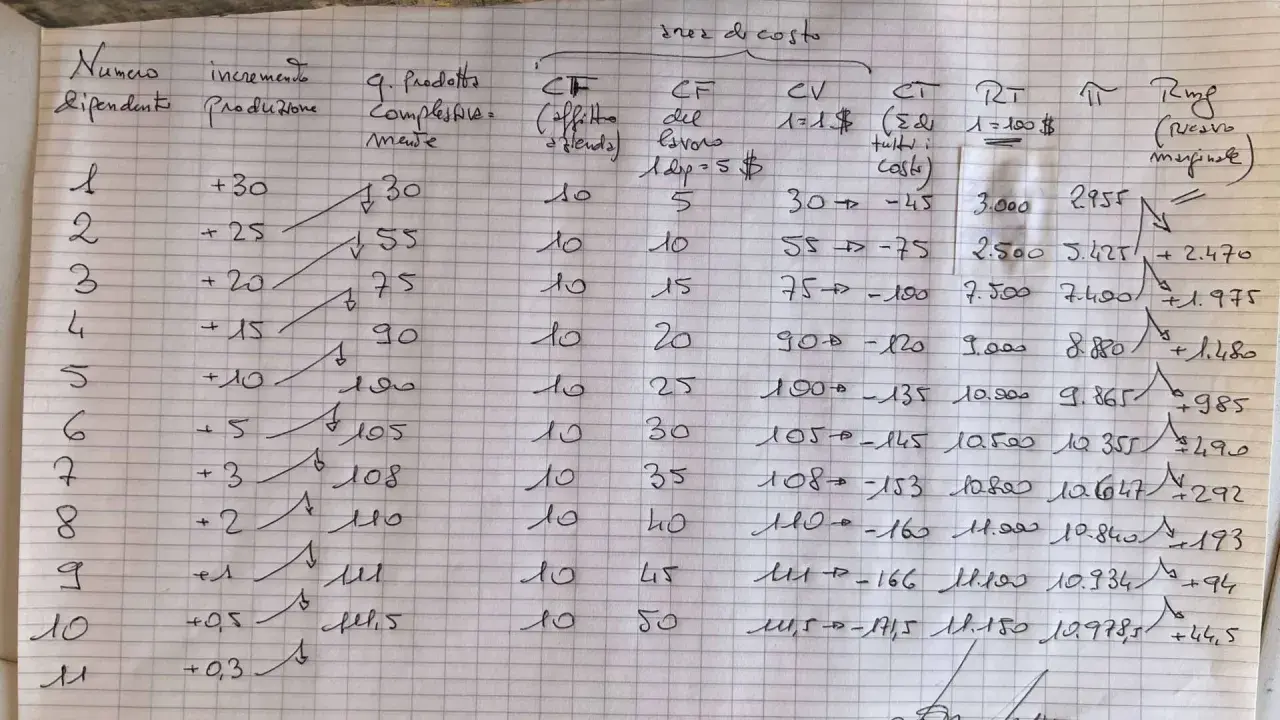 area di costo
Numero dipendente incremento produzione q. prodotta complessiva=mente CF (affitto azienda) CF del lavoro 1 dip = 5 $ CV 1=1 $ CT (Σ di tutti i costi) RT 1=100 $ π Rmg (ricavo marginale)
1 +30 30 10 5 30 → -45 3.000 2955 //
2 +25 55 10 10 55 → -75 2.500 5.425 + 2.470
3 +20 75 10 15 75 → -100 7.500 7.400 +1.975
4 +15 90 10 20 90 → -120 9.000 8.880 +1.480
5 +10 100 10 25 100 → -135 10.000 9.865 +985
6 +5 105 10 30 105 → -145 10.500 10.355 +490
7 +3 108 10 35 108 → -153 10.800 10.647 +292
8 +2 110 10 40 110 → -160 11.000 10.840 +193
9 +1 111 10 45 111 → -166 11.100 10.934 +94
10 +0,5 111,5 10 50 111,5 → -171,5 11.150 10.978,5 +44,5
11 +0,3